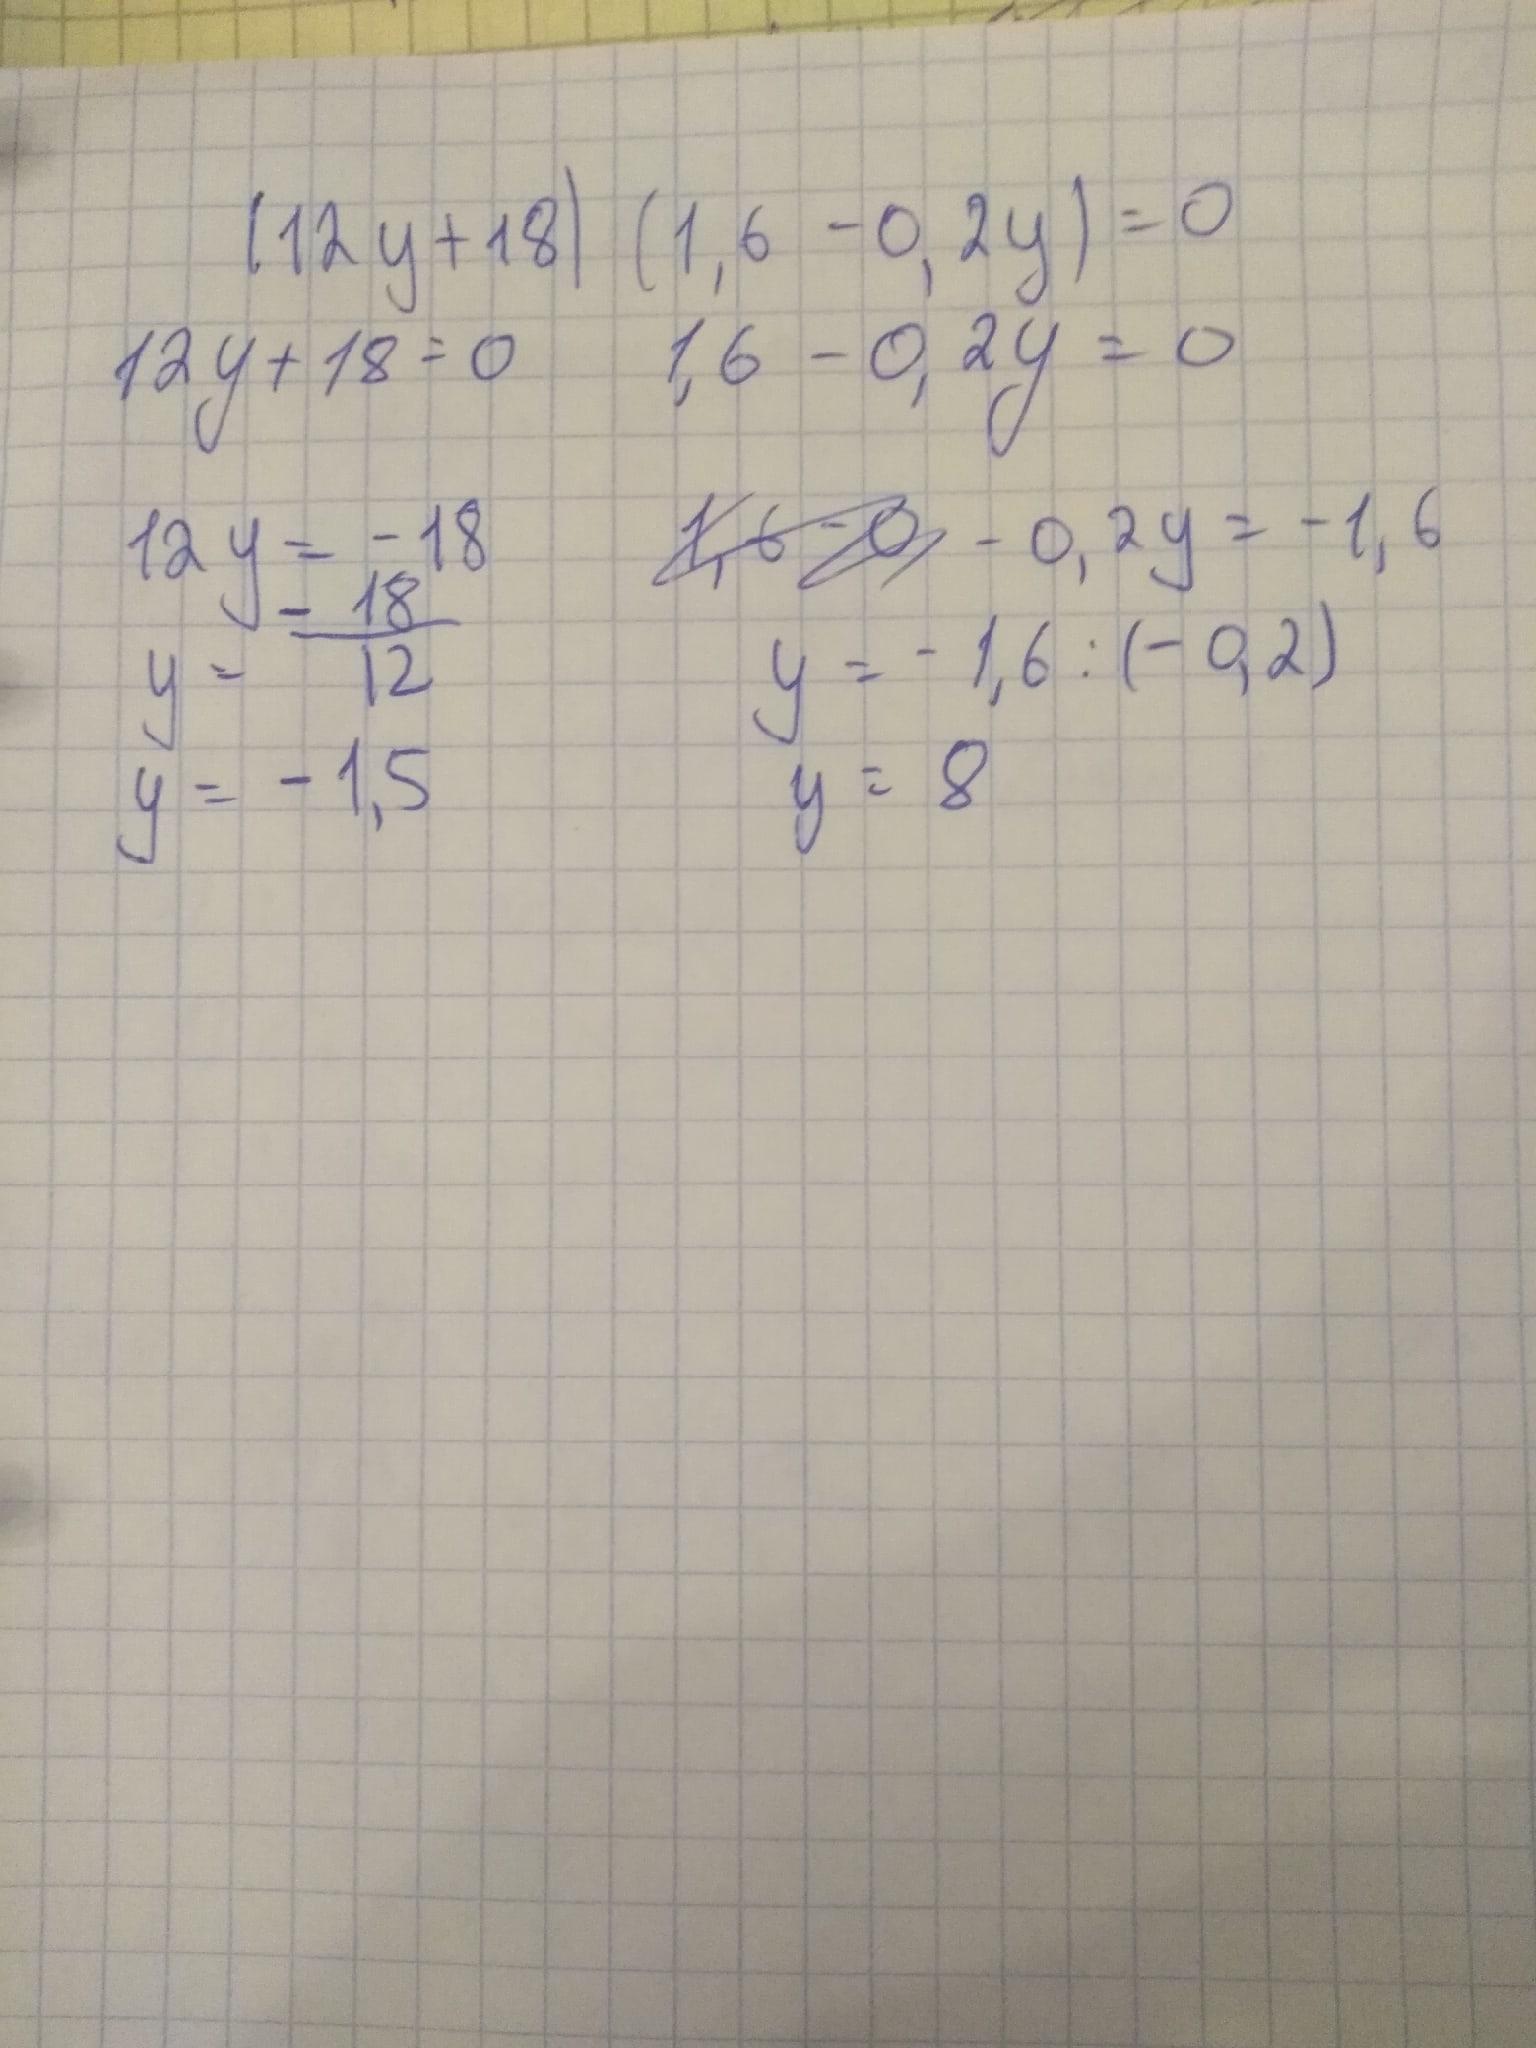 (12y+18) (1,6 - 0,2y) = 0
12y + 18 = 0 1,6 - 0,2y = 0
12y = -18 - 0,2y = -1,6
y = -18/12 y = - 1,6 : (- 0,2)
y = - 1,5 y = 8